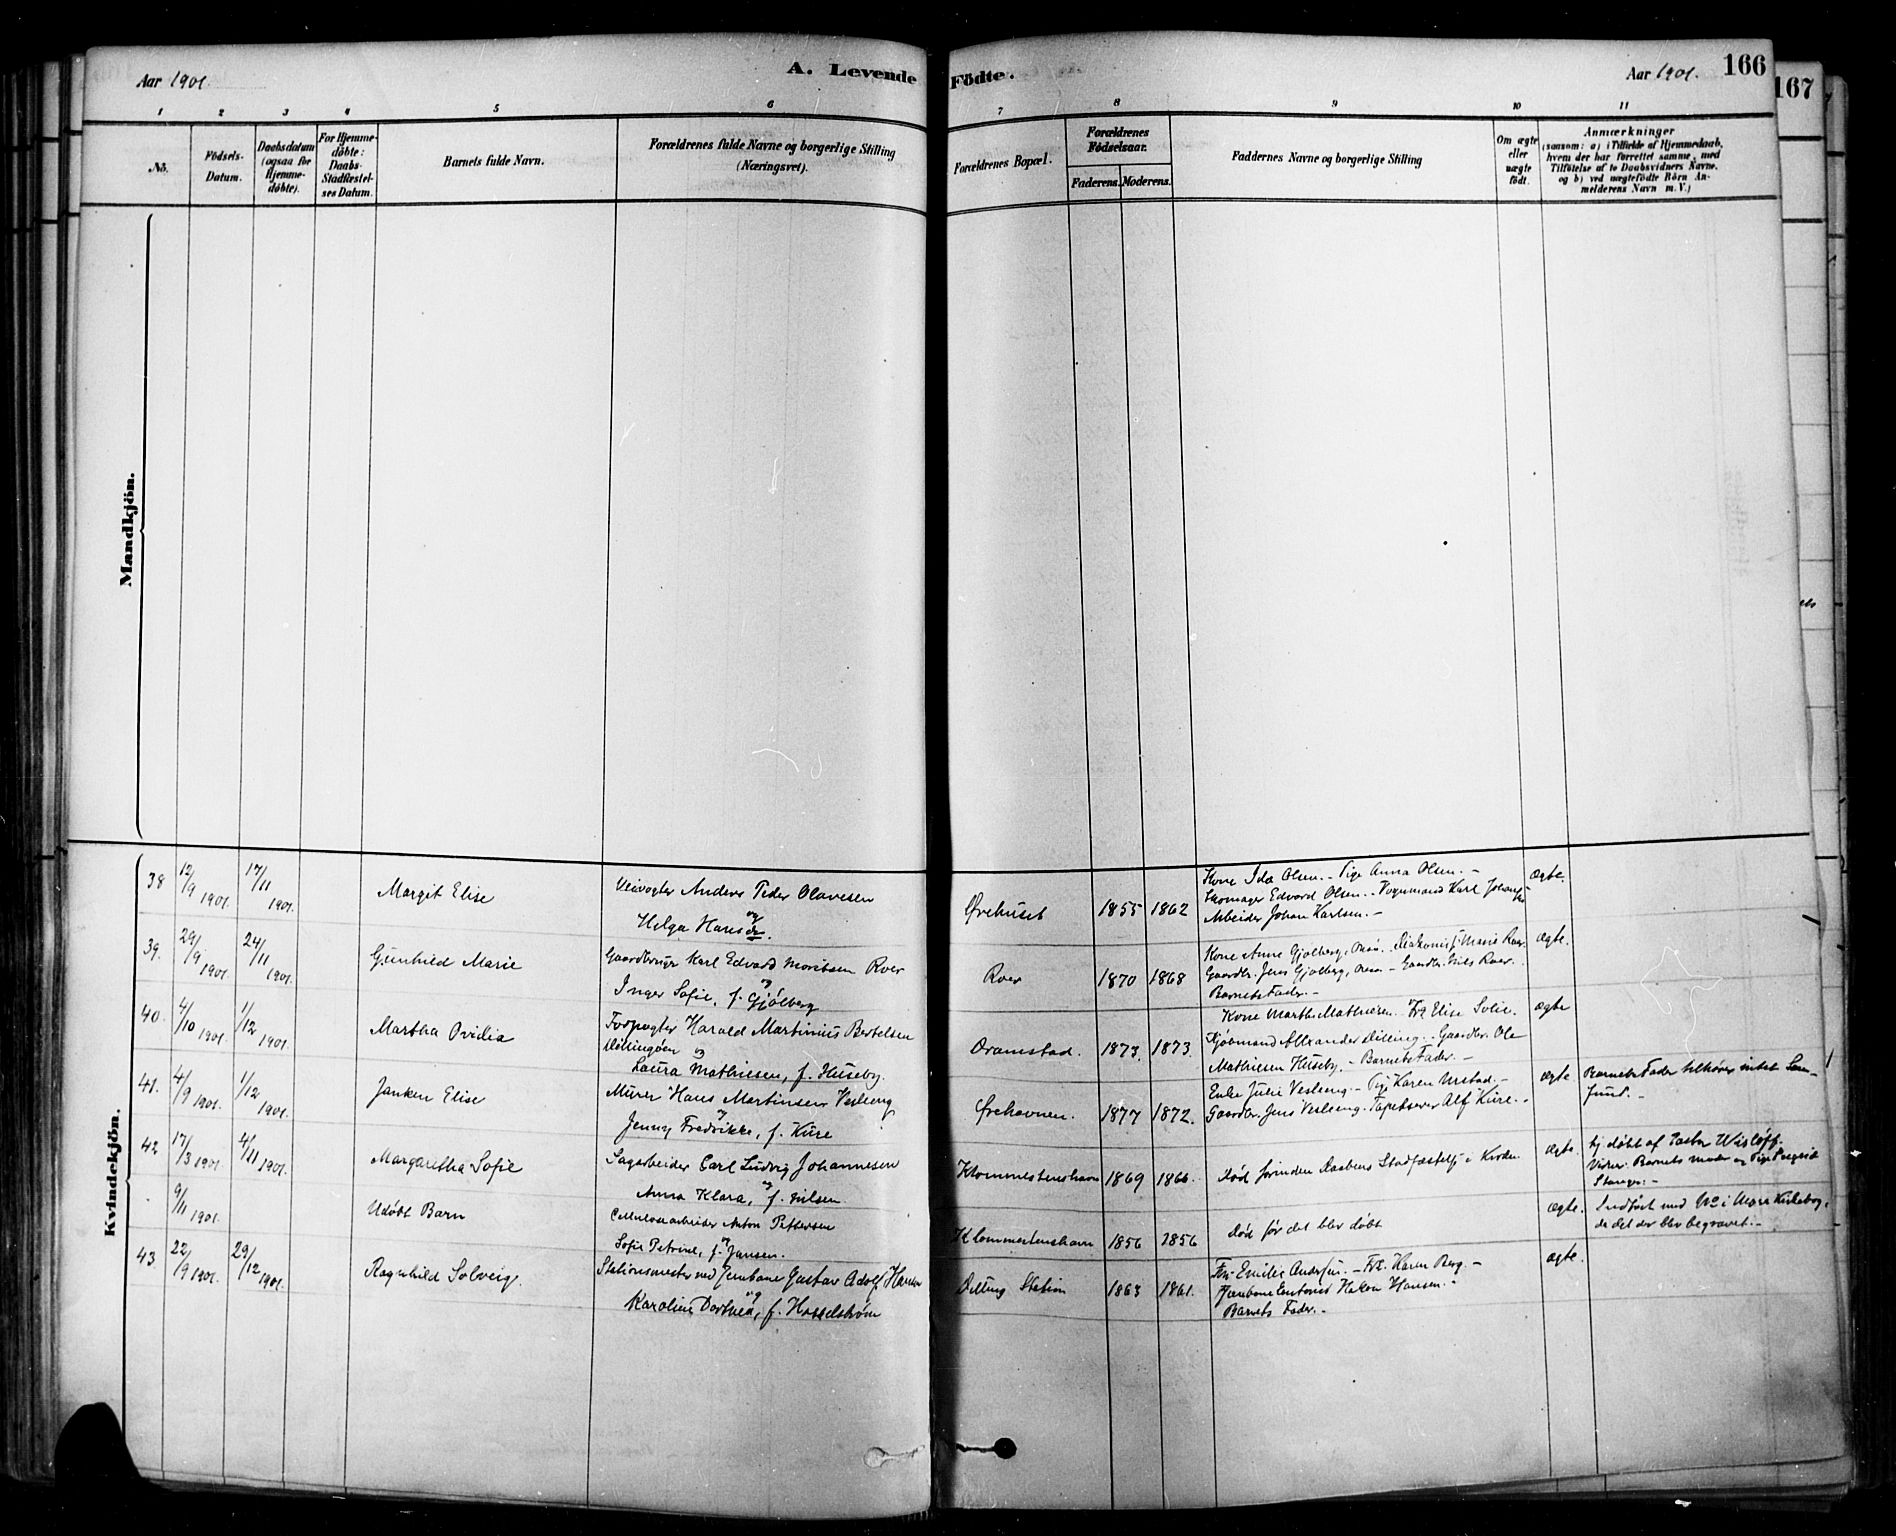 Aar 1901.
A. Levende Födte.
Aar 1901.
166
167
1 2 3 4 5 6 7 8 9 10 11
No.
Födsels-
Datum.
Daabsdatum
(ogsaa for
Hjemme-
döbte).
For Hjemme-
döbte:
Daabs-
Stadfæstel-
ses Datum.
Barnets fulde Navn.
Forældrenes fulde Navne og borgerlige Stilling
(Næringsvei).
Forældrenes Bopæl.
Forældrenes
Födselsaar.
Faderens. Moderens.
Faddernes Navne og borgerlige Stilling
Om ægte
eller
uægte
födt.
Anmærkninger
(saasom: a) i Tilfælde af Hjemmedaab,
hvem der har forrettet samme, med
Tilföielse af to Daabsvidners Navne,
og b) ved uægtefödte Börn An-
melderens Navn m. V.)
Mandkjön.
Kvindekjön.
38 12/9 1901. 17/11 1901. Margit Elise
Veivogter Anders Peder Olavesen
og
Helga Hansdr.
Ørehuset 1855 1862
Kone Ida Olsen. - Pige Anna Olsen. -
Skomager Edvard Olsen. - Vognmand Karl
Arbeider Johan Karlsen. -
Ægte.
39. 29/9 1901. 24/11 1901. Gunhild Marie
Gaardbruger Karl Edvard Moritsen Roer
og
Inger Sofie, f. Gjölberg
Roer 1870 1868
Kone Anne Gjölberg, Marie Roer.
Gaardbr. Jens Gjölberg, - Gaardbr. Nils Roer.
Barnets Fader. -
Ægte.
40. 4/10 1901. 1/12 1901. Martha Ovidia
Fodpagter Harald Martinius Bertelsen
Dillingöen og
Laura Mathiesen, f. Huseby.
Dramstad. 1873. 1873.
Kone Marthe Mathiesen. Frk Elise Solie.
Kjöbmand Alexander Dilling. - Gaardbr. Ole
Mathiesen Huseby. - Barnets Fader. -
Ægte
41. 4/9 1901. 1/12 1901. Janken Elise
Murer Hans Martinsen Vesleng
og
Jenny Fredrikke, f. Kure
Ørehavnen. 1877 1872.
Enke Julie Vesleng - Pige Karen Urstad. -
Gaardbr. Jens Vesleng. Tapetserer Alf Kure. -
Ægte
Barnets Fader tilhører intet Sam-
fund. -
42 17/3 1901. 4/11 1901. Margaretha Sofie
Sagarbeider Carl Ludvig Johannesen
og
Anna Klara, f. Nilsen
Klommestenshavn 1869 1866.
Død førinden Daabens Stadfæstelse i Kirken
Ægte.
Hj. døbt af Pastor Wisløff.
Vidner: Barnets moder og Pige
Stanger. -
9/11 1901. Udøbt Barn
Cellulosearbeider Anton Pettersen
og
Sofie Petrine, f. Jansen.
Klommestenshavn 1856 1856
Død før det blev døbt
Ægte.
Indført med No i Moss Kirkebog,
da det der blev begravet. -
43. 22/9 1901. 29/12 1901. Ragnhild Solveig.
Stationsmester ved Jernbane Gustav Adolf Hansen
og
Karoline Dorthea, f. Hasselstrøm
Dilling Station 1863 1861.
Fru Emilie Andersen. - Frk. Karen Berg. -
Jernbane Håkon Hansen. -
Barnets Fader. -
Ægte.